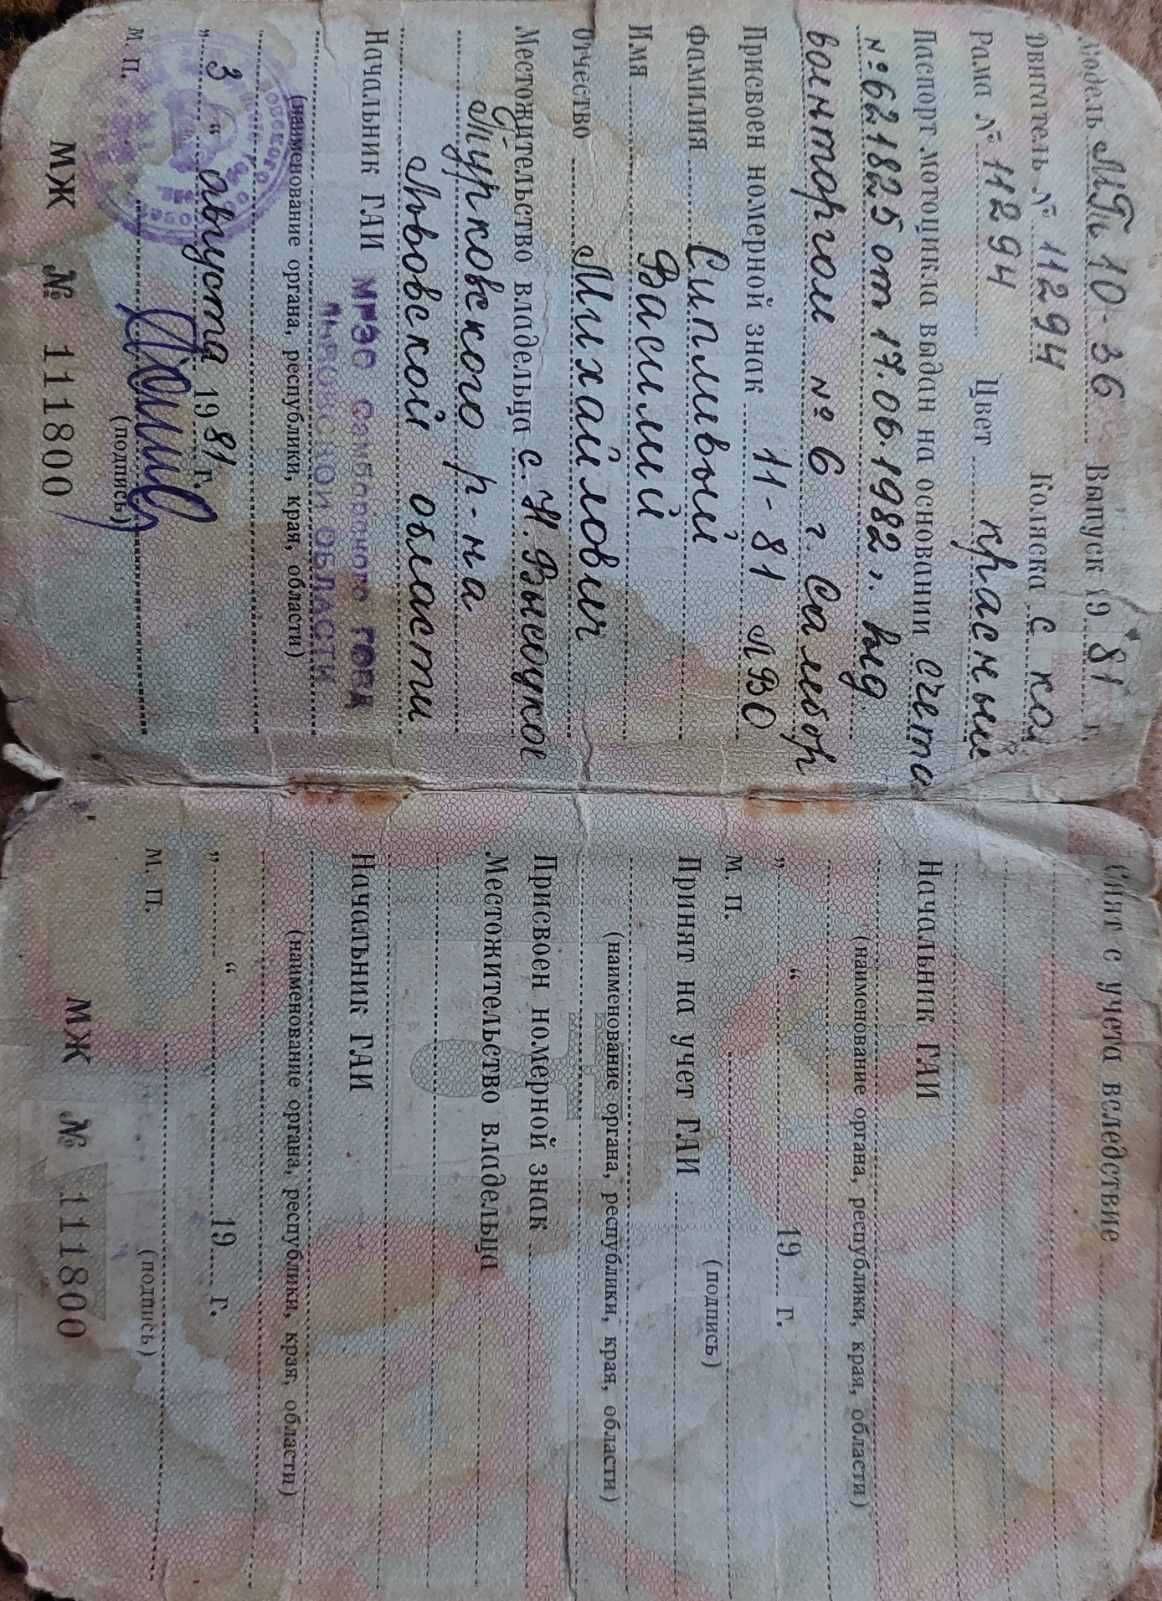 Модель МТ 10-36 Выпуск 1981 г.
Двигатель № 11294 Коляска с кол
Рама № 11294 Цвет красный
Паспорт мотоцикла выдан на основании счета
№ 621825 от 17.06.1982г. выд
военторгом № 6 г. Самбор
Присвоен номерной знак 11-81 ЛВО
Фамилия Сипливый
Имя Василий
Отчество Михайлович
Местожительство владельца с. Н. Высоцкое
Турковского р-на
Львовской области
Начальник ГАИ МРЭО Самборского ГОВД
ЛЬВОВСКОЙ ОБЛАСТИ
(наименование органа, республики, края, области)
„3“ августа 1981 г.
м. п. (подпись)
МЖ № 111800
Снят с учета вследствие
Начальник ГАИ
(наименование органа, республики, края, области)
„ “ 19 г.
м. п. (подпись)
Принят на учет ГАИ
(наименование органа, республики, края, области)
Присвоен номерной знак
Местожительство владельца
Начальник ГАИ
(наименование органа, республики, края, области)
„ “ 19 г.
м. п. (подпись)
МЖ № 111800